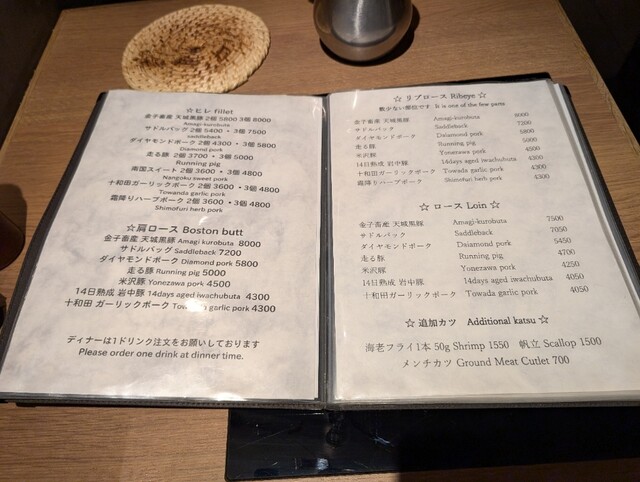 ☆ヒレ fillet
金子畜産 天城黒豚 2個 5800 3個 8000
Amagi-kurobuta
サドルバッグ 2個 5400 ・3個 7500
saddleback
ダイヤモンドポーク 2個 4300 ・3個 5800
Daiamond pork
走る豚 2個 3700 ・3個 5000
Running pig
南国スイート 2個 3600 ・3個 4800
Nangoku sweet pork
十和田ガーリックポーク 2個 3600 ・3個 4800
Towanda garlic pork
霜降りハーブポーク 2個 3600 ・3個 4800
Shimofuri herb pork
☆肩ロース Boston butt
金子畜産 天城黒豚 Amagi kurobuta 8000
サドルバッグ Saddleback 7200
ダイヤモンドポーク Diamond pork 5800
走る豚 Running pig 5000
米沢豚 Yonezawa pork 4500
14日熟成 岩中豚 14days aged iwachubuta 4300
十和田 ガーリックポーク Towanda garlic pork 4300
ディナーは1ドリンク注文をお願いしております
Please order one drink at dinner time.
☆ リブロース Ribeye ☆
数少ない部位です It is one of the few parts
金子畜産 天城黒豚 Amagi-kurobuta 8000
サドルバック Saddleback 7200
ダイヤモンドポーク Daiamond pork 5800
走る豚 Running pig 5000
米沢豚 Yonezawa pork 4500
14日熟成 岩中豚 14days aged iwachubuta 4300
十和田ガーリックポーク Towada garlic pork 4300
霜降りハーブポーク Shimofuri herb pork 4300
☆ ロース Loin ☆
金子畜産 天城黒豚 Amagi-kurobuta 7500
サドルバック Saddleback 7050
ダイヤモンドポーク Daiamond pork 5450
走る豚 Running pig 4700
米沢豚 Yonezawa pork 4250
14日熟成 岩中豚 14days aged iwachubuta 4050
十和田ガーリックポーク Towada garlic pork 4050
☆ 追加カツ Additional katsu ☆
海老フライ1本 50g Shrimp 1550 帆立 Scallop 1500
メンチカツ Ground Meat Cutlet 700